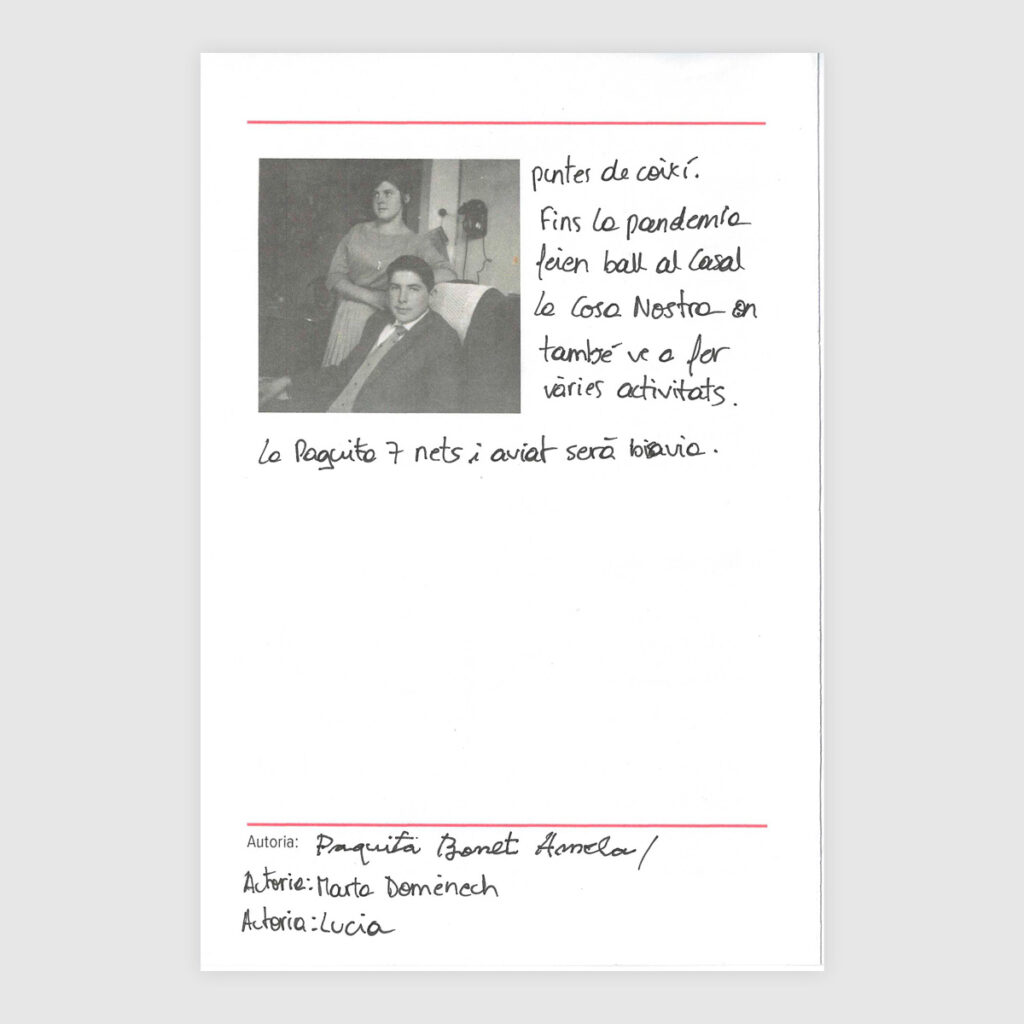 puntes de coixí.
Fins la pandemia
feien ball al Casal
la Cosa Nostra on
també ve a fer
vàries activitats.
La Paquita 7 nets i aviat serà biavia.
Autoria: Paquita Bonet
Actoria: Marta Domènech
Actoria: Lucia